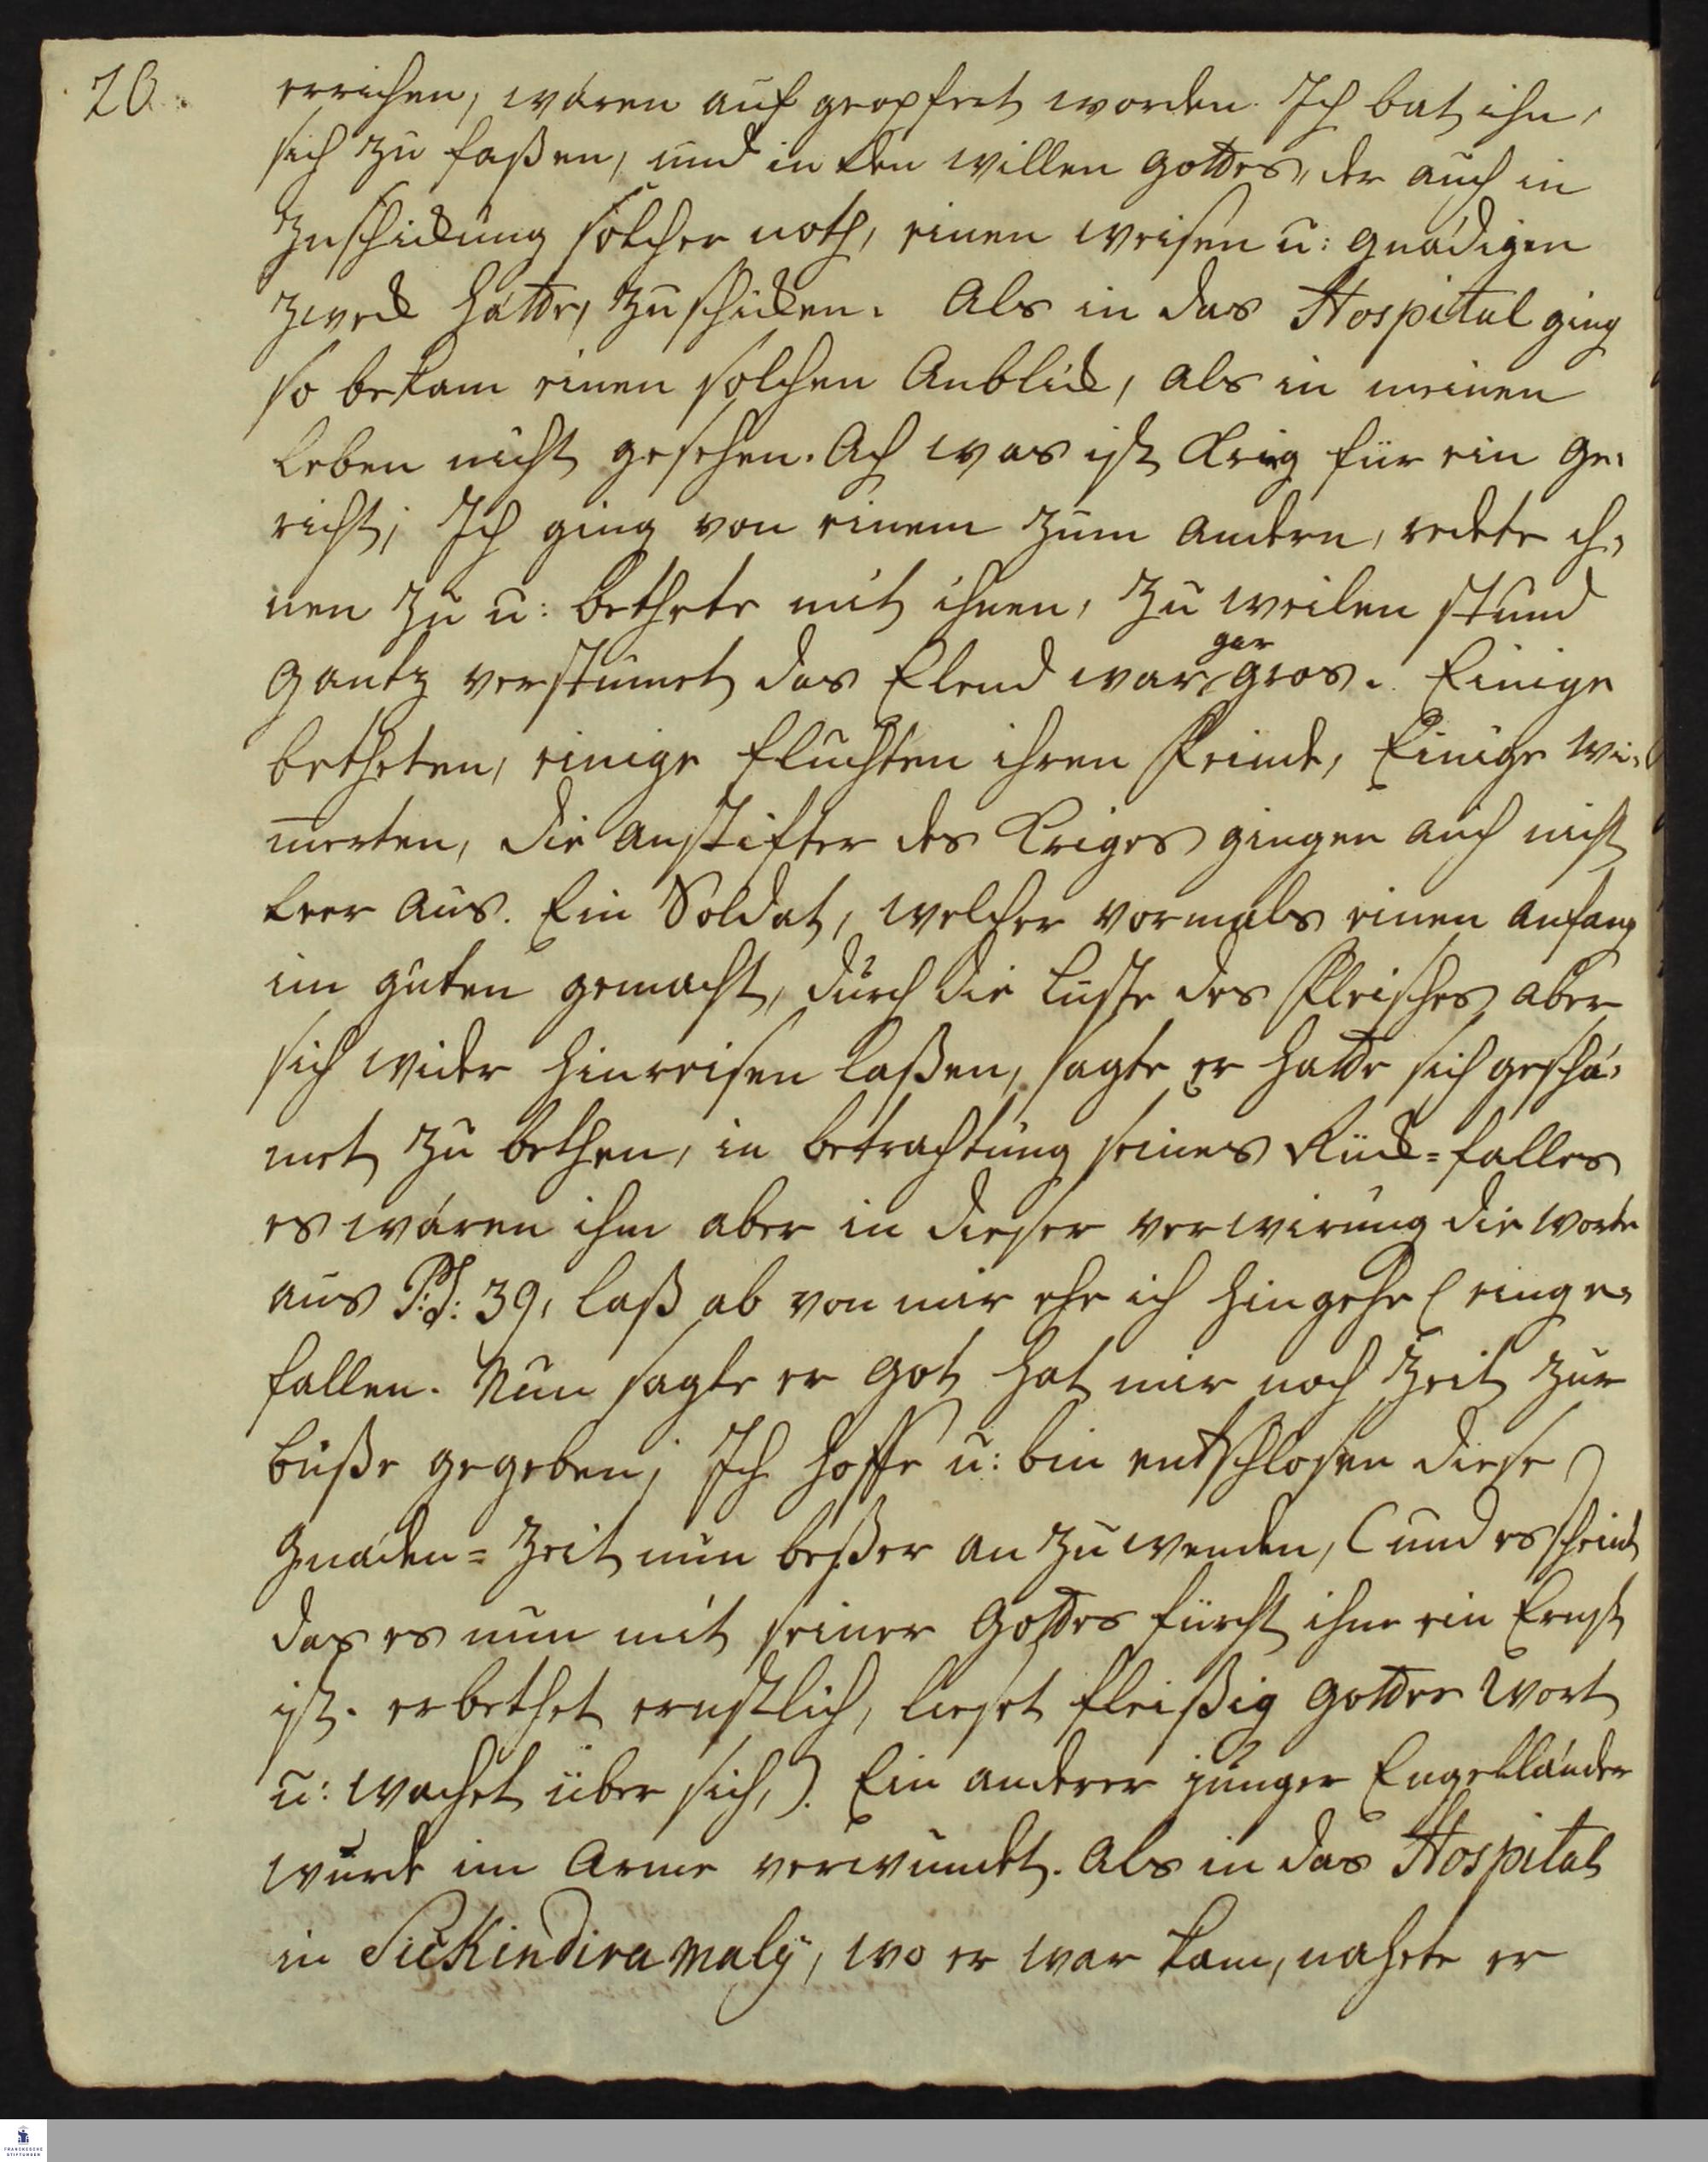 20.
erreichen, wären auf geopfert worden. Ich bat ihn,
sich zu faßen, und in den willen Gottes, der auch in
Zuschickung solcher noth, einen weisen u: gnädigen
Zweck hätte, zu schicken. Als in das Hospital ging
so bekam einen solchen Anblick, als in meinen
Leben nicht gesehen. Ach was ist Krig für ein Ge-
richt; Ich ging von einem zum andern, redete ih-
nen zu u: bethete mit ihnen, zu weilen stund
gantz verstumet, das Elend war gar gros. Einige
betheten, einige fluchten ihren Feinde, Einige wi-
m̄erten, die Anstifter des Kriges gingen auch nicht
leer aus. Ein Soldat, welcher vormals einen anfang
im guten gemacht, durch die Lüste des Fleisches aber
sich wider hinreisen laßen, sagte er hatte sich geschä-
met zu bethen, in betrachtung seines Rück-falles
es wären ihm aber in dieser verwirung die worte
aus Ps: 39, laß ab von mir ehe ich hingehe ( einge-
fallen. Nun sagte er Got hat mir noch Zeit zur
buße gegeben; Ich hoffe u: bin entschlosen diese
Gnaden-Zeit nun beßer an zu wenden, (und es scheint
das es nun mit seiner Gottes fürcht ihm ein Ernst
ist. er bethet ernstlich, lieset fleißig Gottes Wort
u: wachet über sich,). Ein anderer junger Engelländer
wurde im Arme verwundet. Als in das Hospital
in Sickindiramaly, wo er war kam, nahete er
FRANCKESCHE
STIFTUNGEN